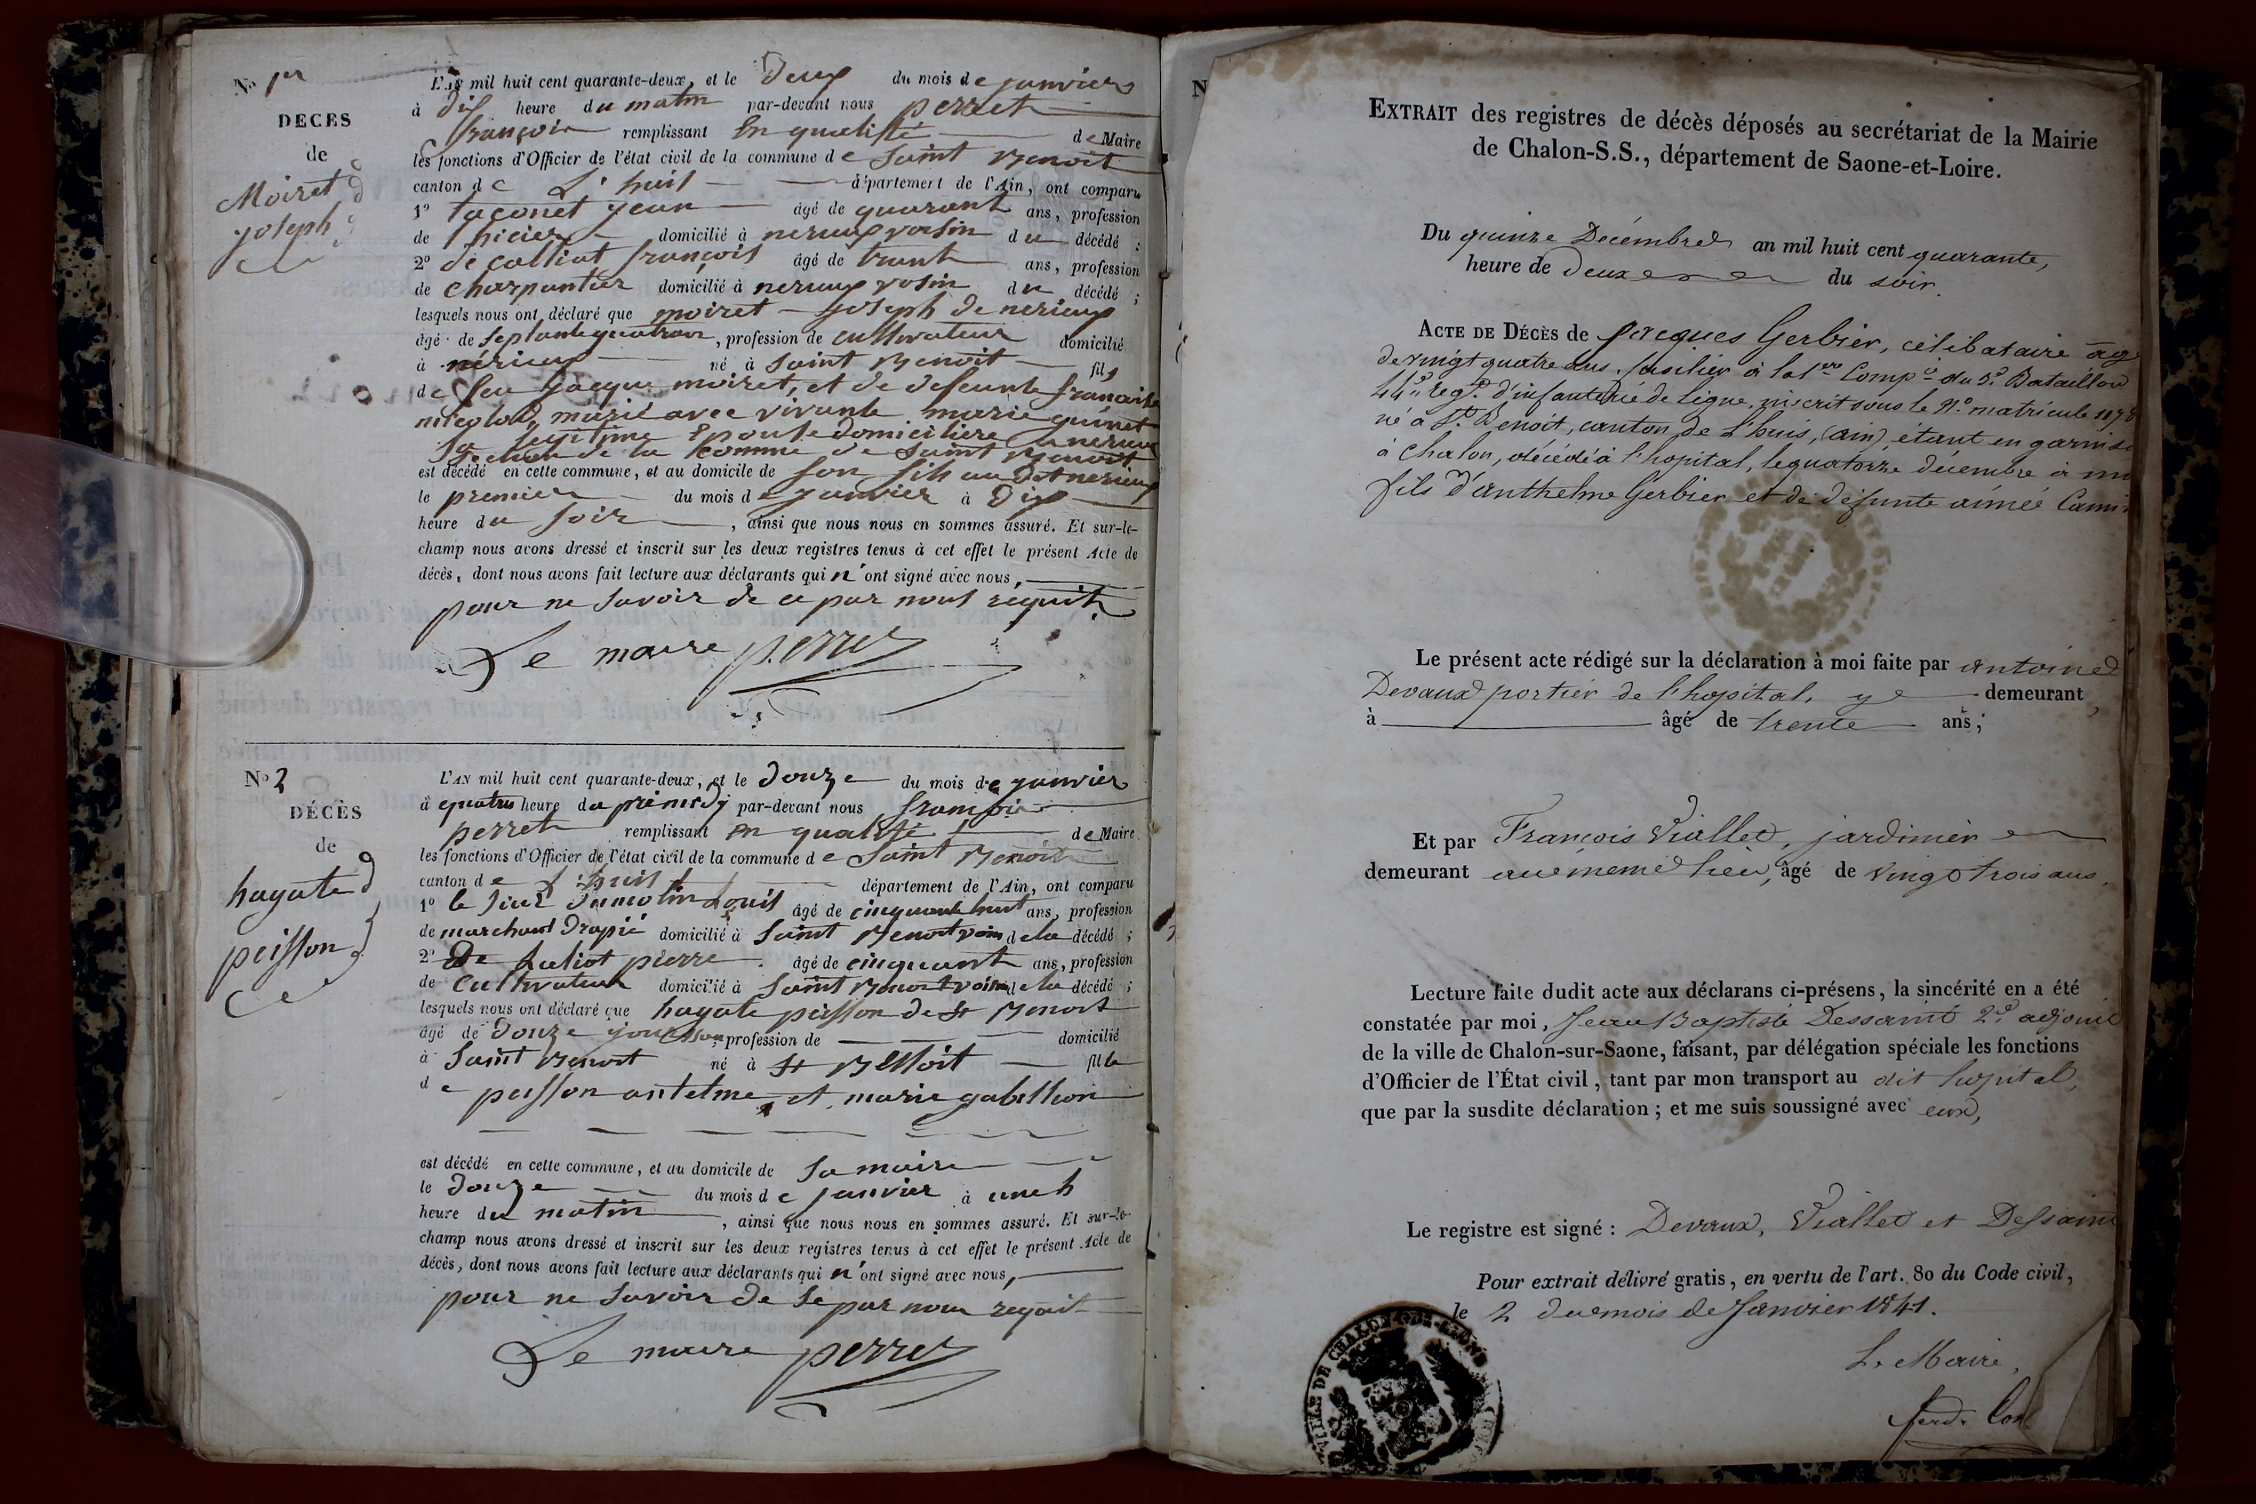 No 1er
DECES
de
Moiret
joseph
L'AN mil huit cent quarante-deux, et le deux du mois de janvier
à dix heure du matin par-devant nous perret
françois remplissant en qualité de Maire
les fonctions d'Officier de l'état civil de la commune de saint Benoit
canton de L'huis département de l'Ain, ont comparu
1° taconet jean âgé de quarant ans, profession
de domicilié à nerieux voisin du décédé ;
2° decalliat françois âgé de trante ans, profession
de charpantier domicilié à nerieux vosin du décédé ;
lesquels nous ont déclaré que moiret joseph de nerieux
âgé de septante quatre ans, profession de cultivateur domicilié
à nérieux né à saint Benoit fils
de feu jacque moiret, et de defeunte francoise
marié avec vivante marie guinet
sa legitime epouse domiciliere a nerieux
section de la comme de saint Benoit
est décédé en cette commune, et au domicile de son fils au dit nerieux
le premier du mois de janvier à dix
heure du soir, ainsi que nous nous en sommes assuré. Et sur-le-
champ nous avons dressé et inscrit sur les deux registres tenus à cet effet le présent Acte de
décès, dont nous avons fait lecture aux déclarants qui n'ont signé avec nous,
pour ne savoir de ce par nous requit
Le maire perret
No 2
DÉCÈS
de
hagate
peisson
L'AN mil huit cent quarante-deux, et le douze du mois de janvier
à quatre heure du par-devant nous françois
perret remplissant en qualité de Maire
les fonctions d'Officier de l'état civil de la commune de saint Benoit
canton de L'huis département de l'Ain, ont comparu
1° le sieur dumolin Louis âgé de cinquante huit ans, profession
de marchand drapié domicilié à saint Benoit voisin de la décédé ;
2° pierre âgé de cinquante ans, profession
de cultivateur domicilié à saint Benoit voisin de la décédé ;
lesquels nous ont déclaré que hagate peisson de st Benoit
âgé de douze jour profession de domicilié
à saint Benoit né à st Benoit fille
de peisson antelme et marie gabillion
est décédé en cette commune, et au domicile de sa maire
le douze du mois de janvier à une h
heure du matin, ainsi que nous nous en sommes assuré. Et sur-le-
champ nous avons dressé et inscrit sur les deux registres tenus à cet effet le présent Acte de
décès, dont nous avons fait lecture aux déclarants qui n'ont signé avec nous,
pour ne savoir de se par nous requit
Le maire perret
N
EXTRAIT des registres de décès déposés au secrétariat de la Mairie
de Chalon-S.S., département de Saone-et-Loire.
Du quinze Décembre an mil huit cent quarante,
heure de deux du soir.
ACTE DE DÉCÈS de Jacques Gerbier, célibataire âg
de vingt quatre ans, fusilier à la 1ere Compie du 3e Bataillon
44e regt d'infanterie de ligne, inscrit sous le No matricule
né à St Benoit, canton de L'huis, (ain) étant en garnis
à Chalon, décédé à l'hopital, le quatorze décembre à mi
fils d'anthelme Gerbier et de défunte aimée Cami
Le présent acte rédigé sur la déclaration à moi faite par antoine
Devaux portier de l'hopital, y demeurant
à âgé de trente ans ;
Et par François Viallet, jardinier
demeurant au même lieu, âgé de vingt trois ans,
Lecture faite dudit acte aux déclarans ci-présens, la sincérité en a été
constatée par moi, Jean Baptiste Dessaint 2d adjoint
de la ville de Chalon-sur-Saone, faisant, par délégation spéciale les fonctions
d'Officier de l'État civil, tant par mon transport au dit hopital,
que par la susdite déclaration ; et me suis soussigné avec eux,
Le registre est signé : Devaux, Viallet et Dessaint
Pour extrait délivré gratis, en vertu de l'art. 80 du Code civil,
le 2 du mois de Janvier 1841.
Le Maire,
VILLE DE CHALON-SUR-SAONE